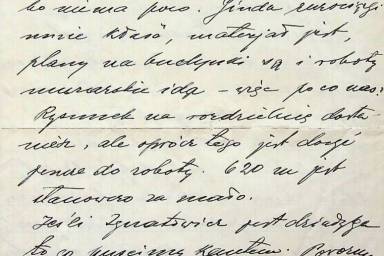 bo niema poco. Jinda
mnie kłaść, materjał jest,
plany na budynki są i roboty
murarskie idą – więc poco nas?
Rysunek na rozdzielnię dosta
niesz, ale oprócz tego jest dosyć
jeszcze do roboty. 620 m jest
stanowczo za mało.
Jeśli Ignatowicz jest
to go puścimy kantem.